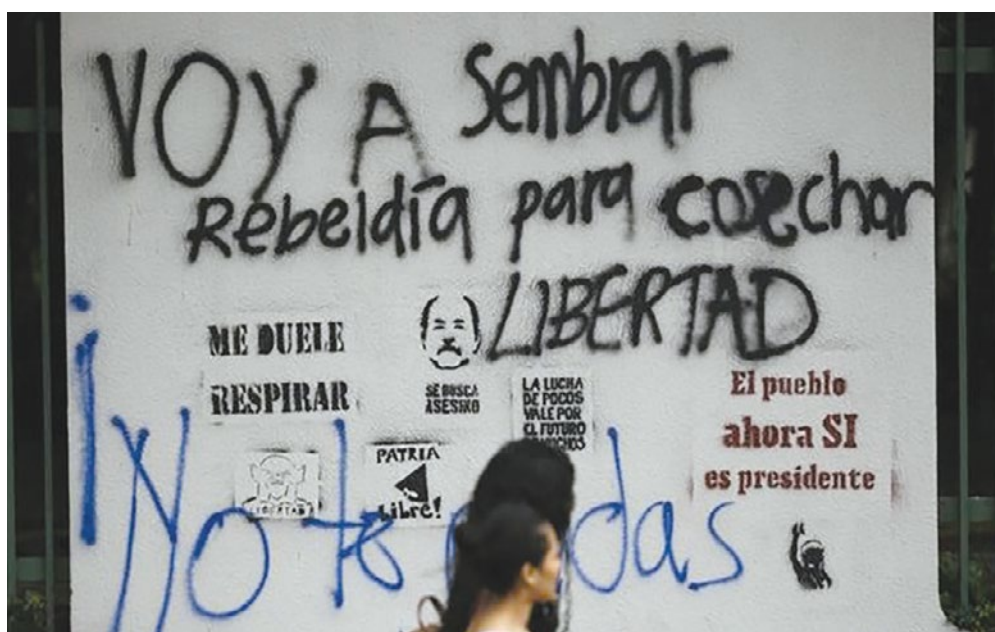 VOY A Sembrar
Rebeldía para cosechar
LIBERTAD
ME DUELE
RESPIRAR
SE BUSCA
ASESINO
LA LUCHA
DE POCOS
VALE POR
EL FUTURO
El pueblo
ahora SI
es presidente
LIBERTAD
PATRIA
Libre!
¡No te das